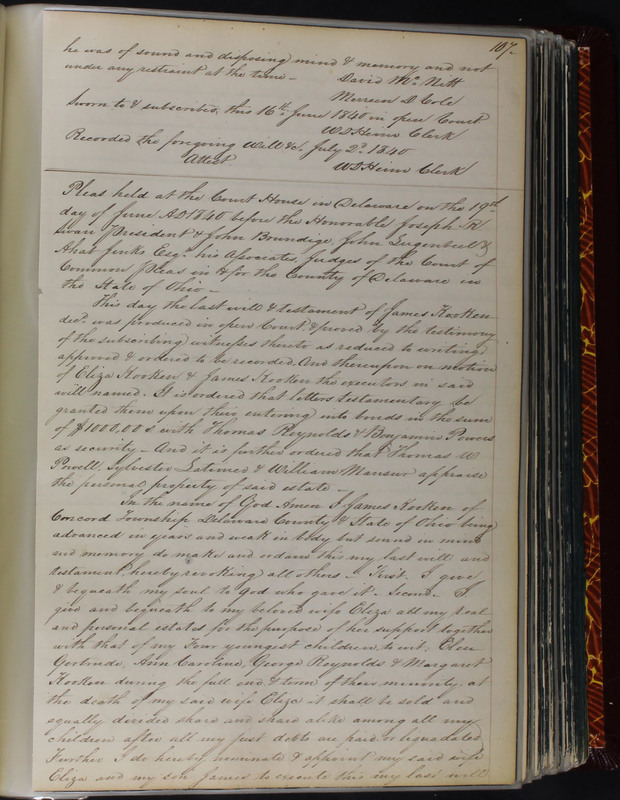 107.
he was of sound and disposing mind & memory and not
under any restraint at the time – David McNitt
Merrein D Cole
Sworn to & subscribed, this 16th June 1840 in open Court
W D Heim Clerk
Recorded the foregoing Will &c. July 2d 1840
Attest W D Heim Clerk
Pleas held at the Court House in Delaware on the 19th
day of June AD 1840 before the Honorable Joseph R
Swan President & John Brundige, John Lugenbeel &
Ahab Jinks Esqr. his Associates, Judges of the Court of
Common Pleas in & for the County of Delaware in
the State of Ohio –
This day the last will & testament of James Kooken
decd. was produced in open Court & proved by the testimony
of the subscribing witnesses thereto as reduced to writing
approved & ordered to be recorded. And thereupon on motion
of Eliza Kooken & James Kooken the executors in said
will named. It is ordered that letters testamentary be
granted them upon their entering into bonds in the sum
of $1000,00 $ with Thomas Reynolds & Benjamin Powers
as security – And it is further ordered that Thomas W
Powell, Sylvester Latimer & William Mansur appraise
the personal property of said estate –
In the name of God Amen I James Kooken of
Concord Township Delaware County & State of Ohio being
advanced in years and weak in body but sound in mind
and memory do make and ordain this my last will and
testament, hereby revoking all others – First. I give
& bequeath my soul to God who gave it. Second – I
give and bequeath to my beloved wife Eliza all my real
and personal estates for the purpose of her support together
with that of my Four youngest children to wit.
Gertrude, Ann Caroline, George Reynolds & Margaret
Kooken during the full end & term of their minority at
the death of my said wife Eliza it shall be sold and
equally divided share and share alike among all my
children after all my just debts are paid or liquadated
Further I do hereby nominate & appoint my said wife
Eliza and my son James to execute this my last will